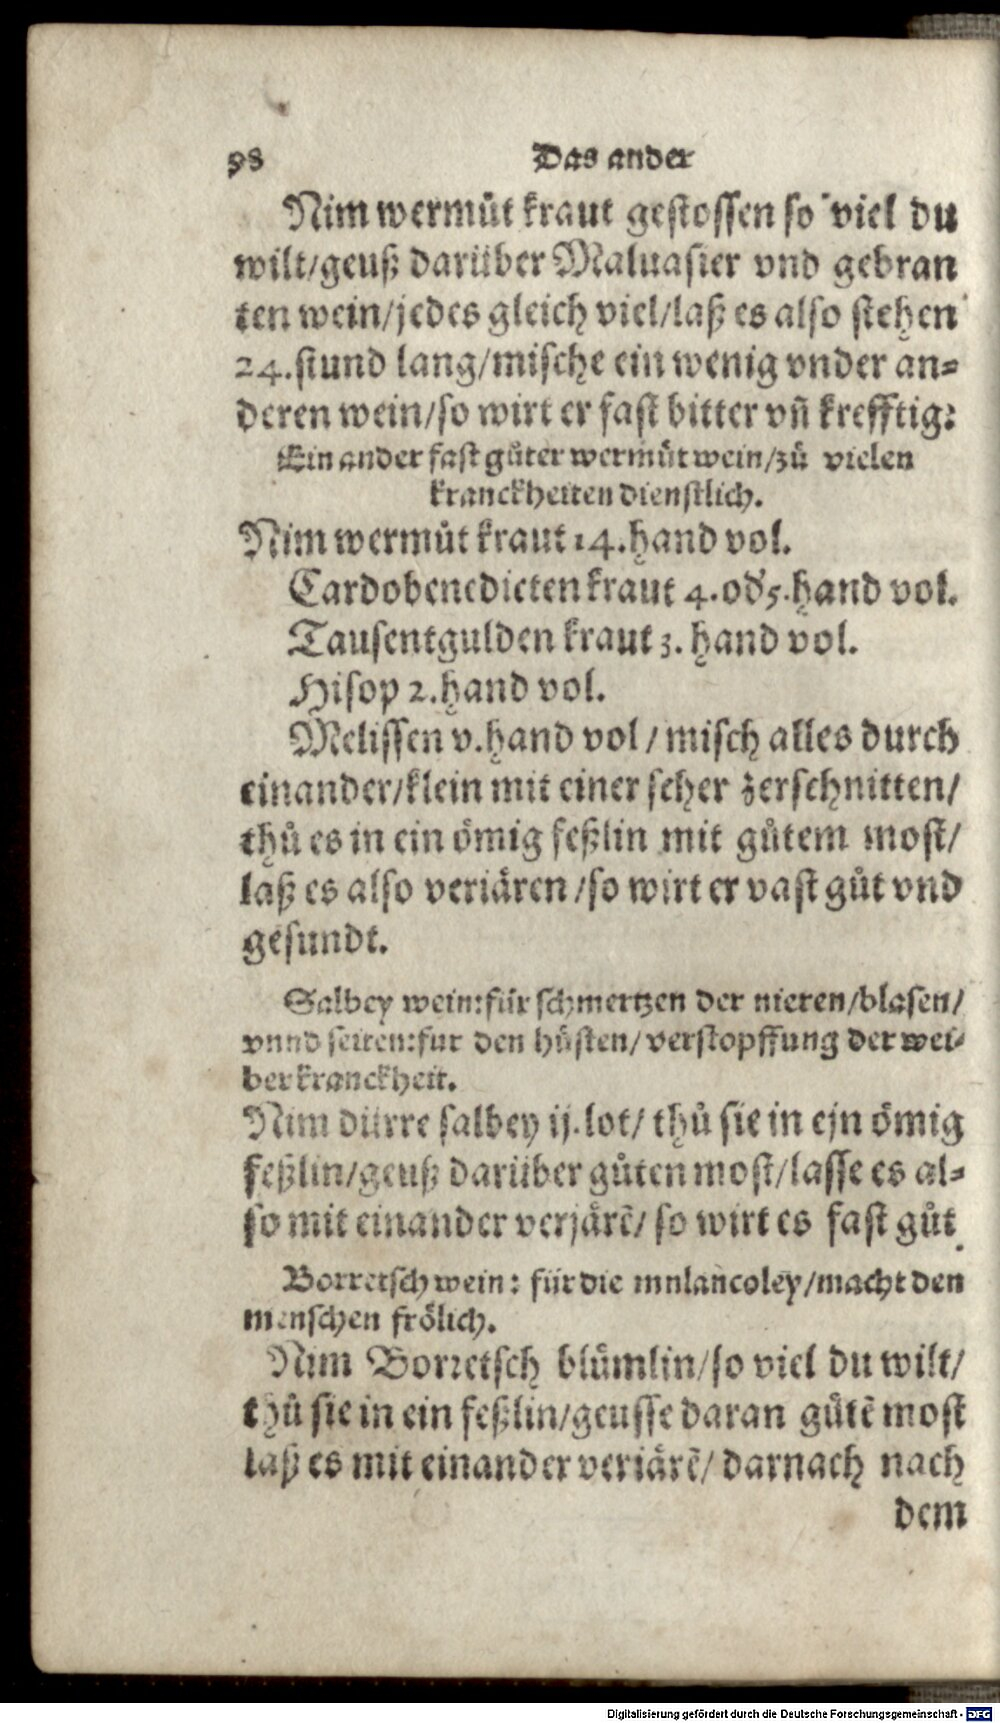 98 Das ander
Nim wermůt kraut gestossen so viel du
wilt/geuß darüber Maluasier vnd gebran
ten wein/jedes gleich viel/laß es also stehen
24.stund lang/mische ein wenig vnder an-
deren wein/so wirt er fast bitter vñ krefftig:
Ein ander fast gůter wermůt wein/zů vielen
kranckheiten dienstlich.
Nim wermůt kraut 14.hand vol.
Cardobenedicten kraut 4.od' 5.hand vol.
Tausentgulden kraut 3. hand vol.
Hisop 2.hand vol.
Melissen v.hand vol/misch alles durch
einander/klein mit einer scher zerschnitten/
thů es in ein ömig feßlin mit gůtem most/
laß es also veriären/so wirt er vast gůt vnd
gesundt.
Salbey wein:für schmertzen der nieren/blasen/
vnnd seiten:fur den hůsten/verstopffung der wei-
ber kranckheit.
Nim dürre salbey ij.lot/ thů sie in ejn ömig
feßlin/geuß darüber gůten most/lasse es al-
so mit einander verjärẽ/ so wirt es fast gůt.
Borretsch wein: für die mnlancoley/macht den
menschen frölich.
Nim Borretsch blůmlin/so viel du wilt/
thů sie in ein feßlin/geusse daran gůtẽ most
laß es mit einander veriärẽ/ darnach nach
dem
Digitalisierung gefördert durch die Deutsche Forschungsgemeinschaft - DFG